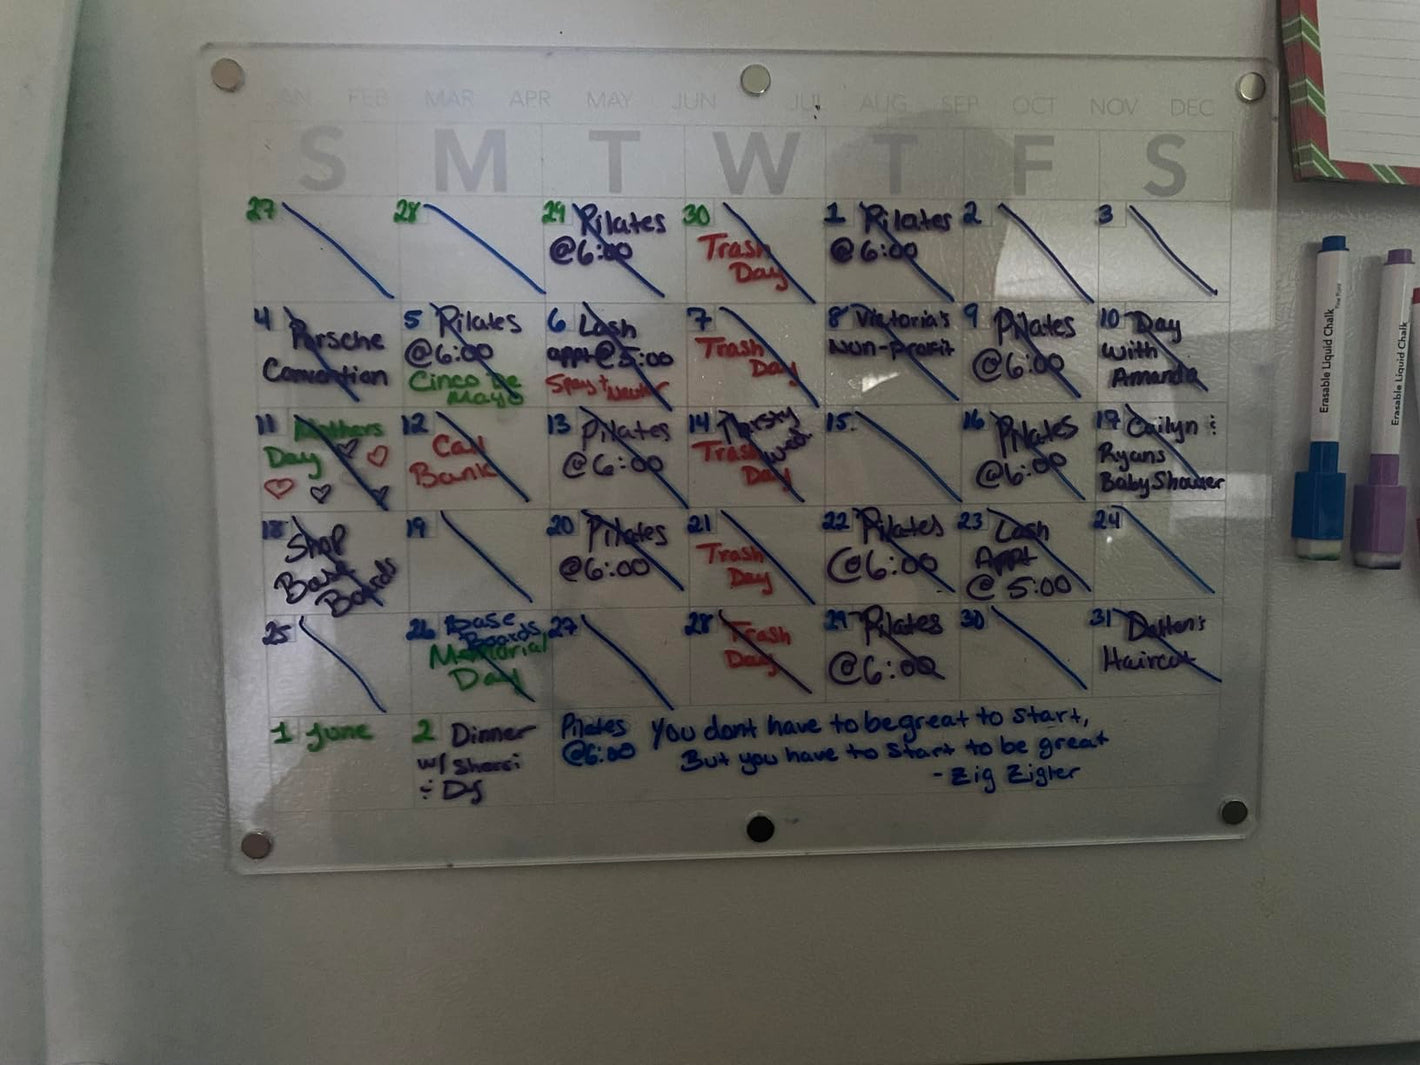 JAN FEB MAR APR MAY JUN JUL AUG SEP OCT NOV DEC
S M T W T F S
27
28
29 Pilates
@6:00
30
Trash
Day
1 Pilates
@6:00
2
3
4 Porsche
Convention
5 Pilates
@6:00
Cinco De
Mayo
6 Lash
appt@5:00
Spay + Neuter
7
Trash
Day
8 Victoria's
Non-Profit
9 Pilates
@6:00
10 Day
with
Amanda
11 Mothers
Day
12
Call
Bank
13 Pilates
@6:00
14
Trash
Day
15
16 Pilates
@6:00
17 Cailyn &
Ryans
Baby Shower
18 Shop
Base
Boards
19
20 Pilates
@6:00
21
Trash
Day
22 Pilates
@6:00
23 Lash
Appt
@ 5:00
24
25
26 Base
Boards
Memorial
Day
27
28 Trash
Day
29 Pilates
@6:00
30
31 Dalton's
Haircut
1 June
2 Dinner
w/ Sherri
& DJ
Pilates
@6:00
You dont have to be great to start,
But you have to start to be great
- Zig Zigler
Erasable Liquid Chalk
Erasable Liquid Chalk